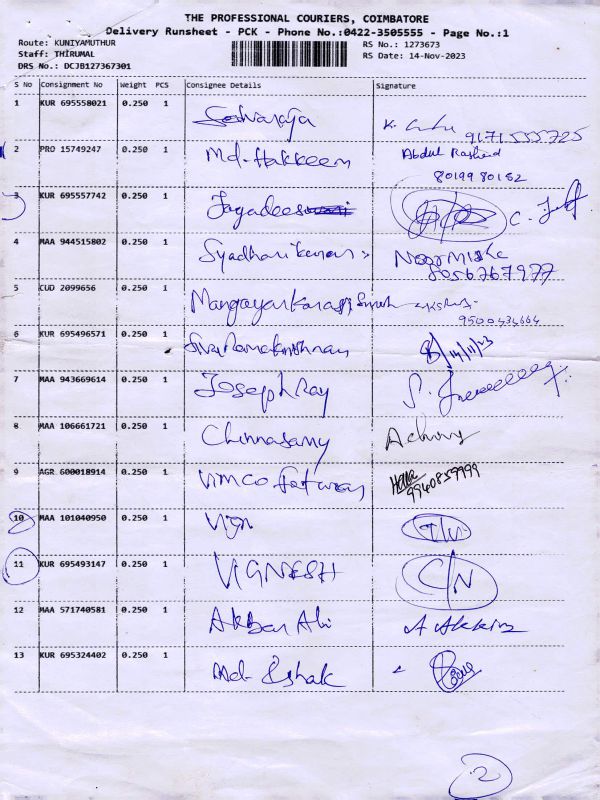 THE PROFESSIONAL COURIERS, COIMBATORE
Delivery Runsheet - PCK - Phone No.:0422-3505555 - Page No.:1
Route: KUNIYAMUTHUR RS No.: 1273673
Staff: THIRUMAL RS Date: 14-Nov-2023
DRS No.: DCJB127367301
S No Consignment No Weight PCS Consignee Details Signature
1 KUR 695558021 0.250 1
9171555725
2 PRO 15749247 0.250 1 Md. Hakkeem Abdul Rasheed
8019980182
3 KUR 695557742 0.250 1
4 MAA 944515802 0.250 1
8056767977
5 CUD 2099656 0.250 1 Mangayarkarasi
9500434664
6 KUR 695496571 0.250 1 Sivaramakrishnan 14/11/23
7 MAA 943669614 0.250 1 Joseph Ray
8 MAA 106661721 0.250 1 Chinnasamy
9 AGR 600018914 0.250 1 Vimco
9940859999
10 MAA 101040950 0.250 1
11 KUR 695493147 0.250 1 VIGNESH C/N
12 MAA 571740581 0.250 1 Akbar Ali
13 KUR 695324402 0.250 1 Md. Ishak
2